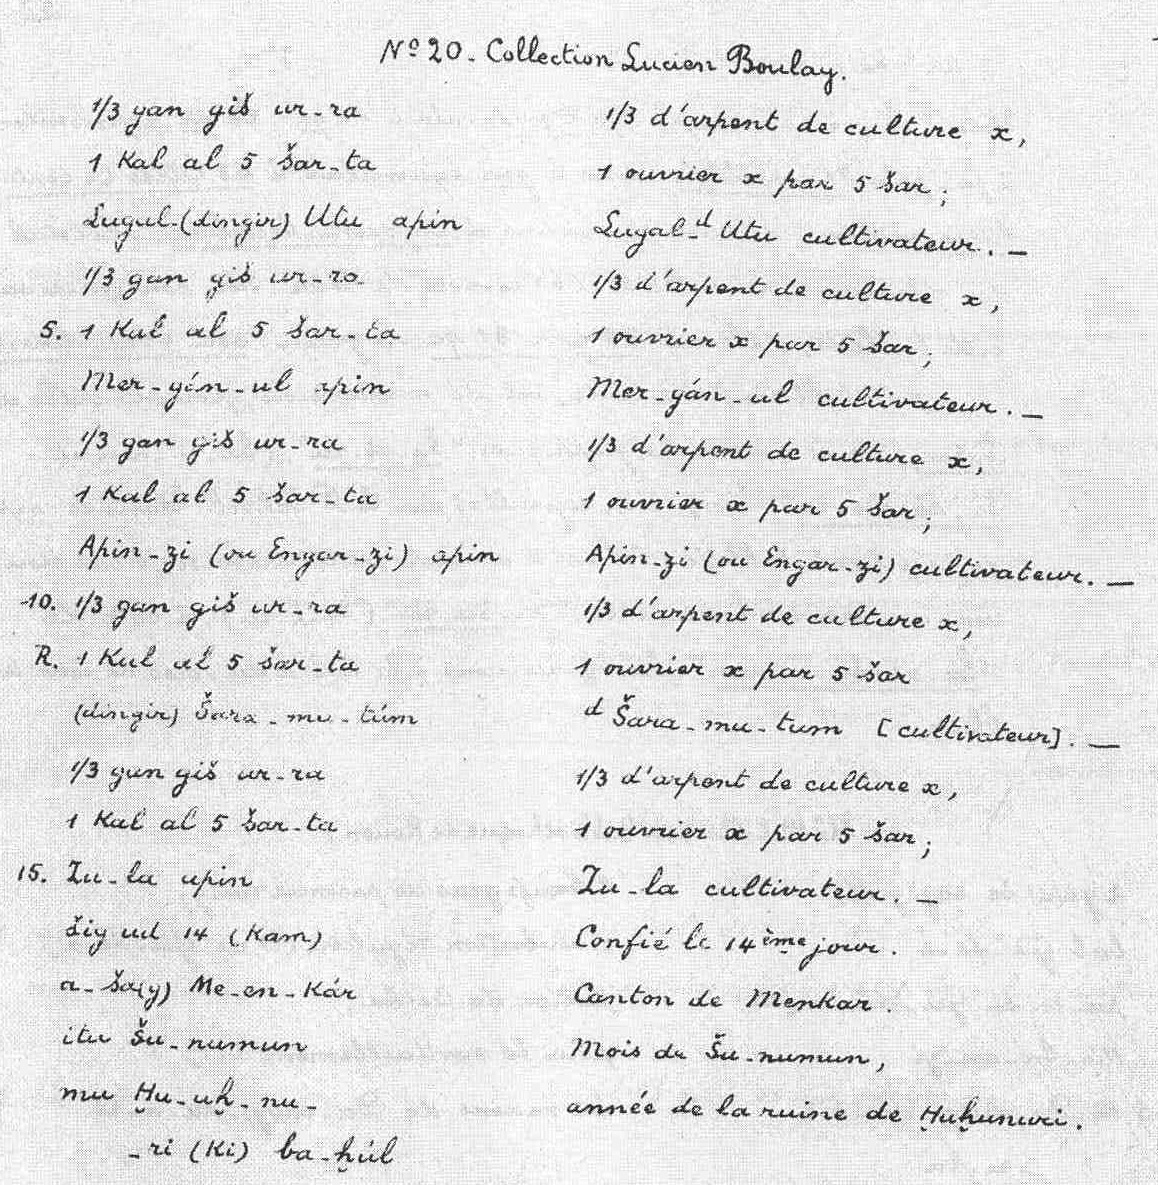 Nº 20. Collection Lucien Boulay.
1/3 gan giš ur-ra
1/3 d'arpent de culture x,
1 Kal al 5 šar-ta
1 ouvrier x par 5 šar;
Lugal-(dingir) Utu apin
Lugal-ᵈ Utu cultivateur. —
1/3 gan giš ur-ra
1/3 d'arpent de culture x,
5. 1 Kal al 5 šar-ta
1 ouvrier x par 5 šar;
Mer-gán-ul apin
Mer-gán-ul cultivateur. —
1/3 gan giš ur-ra
1/3 d'arpent de culture x,
1 Kal al 5 šar-ta
1 ouvrier x par 5 šar;
Apin-zi (ou Engar-zi) apin
Apin-zi (ou Engar-zi) cultivateur. —
10. 1/3 gan giš ur-ra
1/3 d'arpent de culture x,
R. 1 Kal al 5 šar-ta
1 ouvrier x par 5 šar
(dingir) Šara-mu-túm
ᵈ Šara-mu-tum [cultivateur]. —
1/3 gan giš ur-ra
1/3 d'arpent de culture x,
1 Kal al 5 šar-ta
1 ouvrier x par 5 šar;
15. Lu-la apin
Lu-la cultivateur. —
šig ud 14 (Kam)
Confié le 14ème jour.
a-ša(g) Me-en-Kár
Canton de Menkar.
itu Šu-numun
Mois de Šu-numun,
mu Ḫu-uḫ-nu-
année de la ruine de Ḫuḫunuri.
-ri (Ki) ba-ḫúl